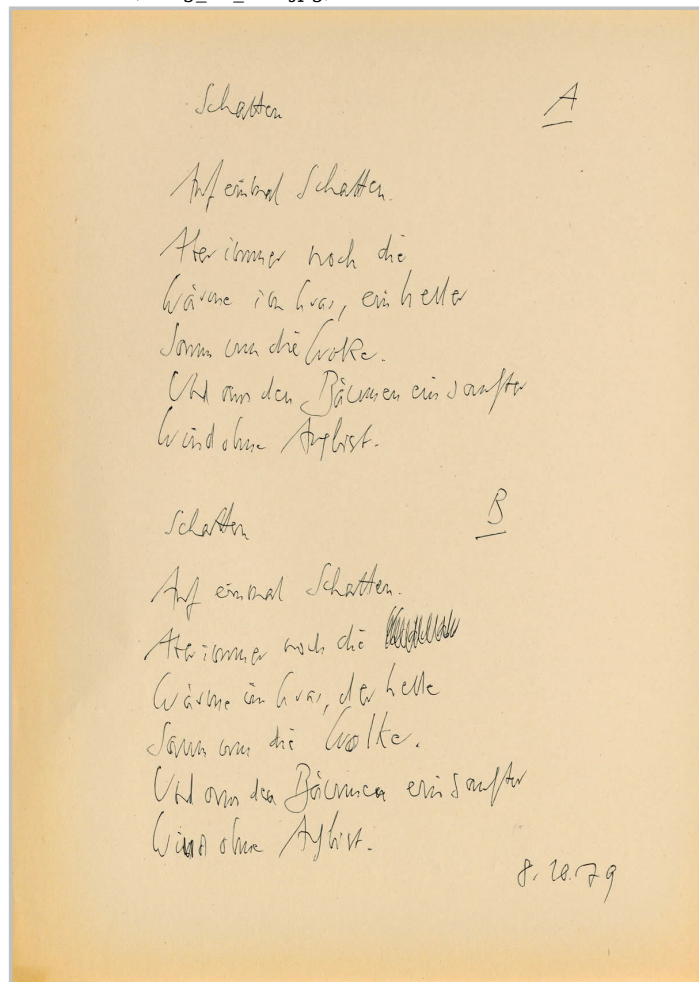 Schatten A
Auf einmal Schatten.
Aber immer noch die
Wärme im Gras, ein heller
Saum um die Wolke.
Und aus den Bäumen ein sanfter
Wind ohne Arglist.
Schatten B
Auf einmal Schatten.
Aber immer noch die
Wärme im Gras, der helle
Saum um die Wolke.
Und aus den Bäumen ein sanfter
Wind ohne Arglist.
8.10.79